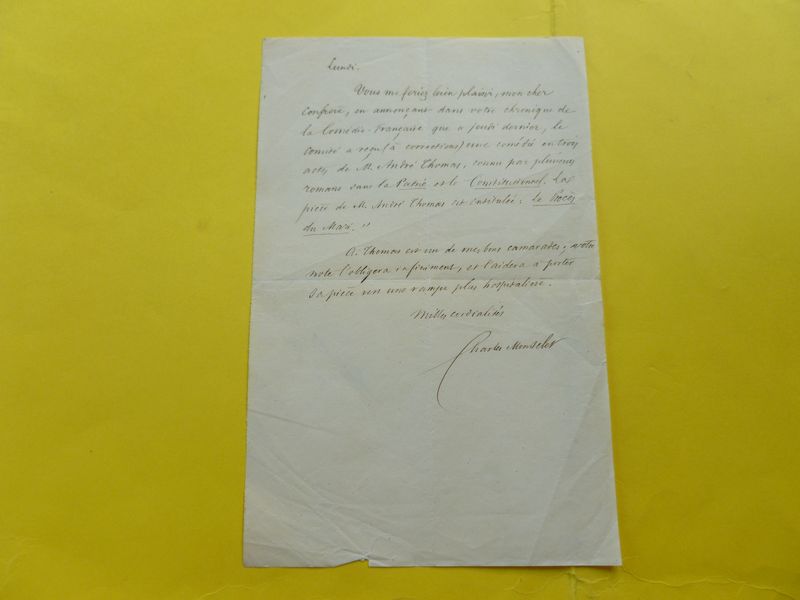 Lundi.
Vous me feriez bien plaisir, mon cher
confrère, en annonçant dans votre chronique de
la Comédie-Française que jeudi dernier, le
comité a reçu (à corrections) une comédie en trois
actes de M. André Thomas, connu par plusieurs
romans dans la Patrie et le Constitutionnel. La
pièce de M. André Thomas est intitulée : le Procès
du Mari. "
A. Thomas est un de mes bons camarades ; votre
note l'obligera infiniment, et l'aidera à porter
sa pièce vers une rampe plus hospitalière.
Milles cordialités
Charles Monselet